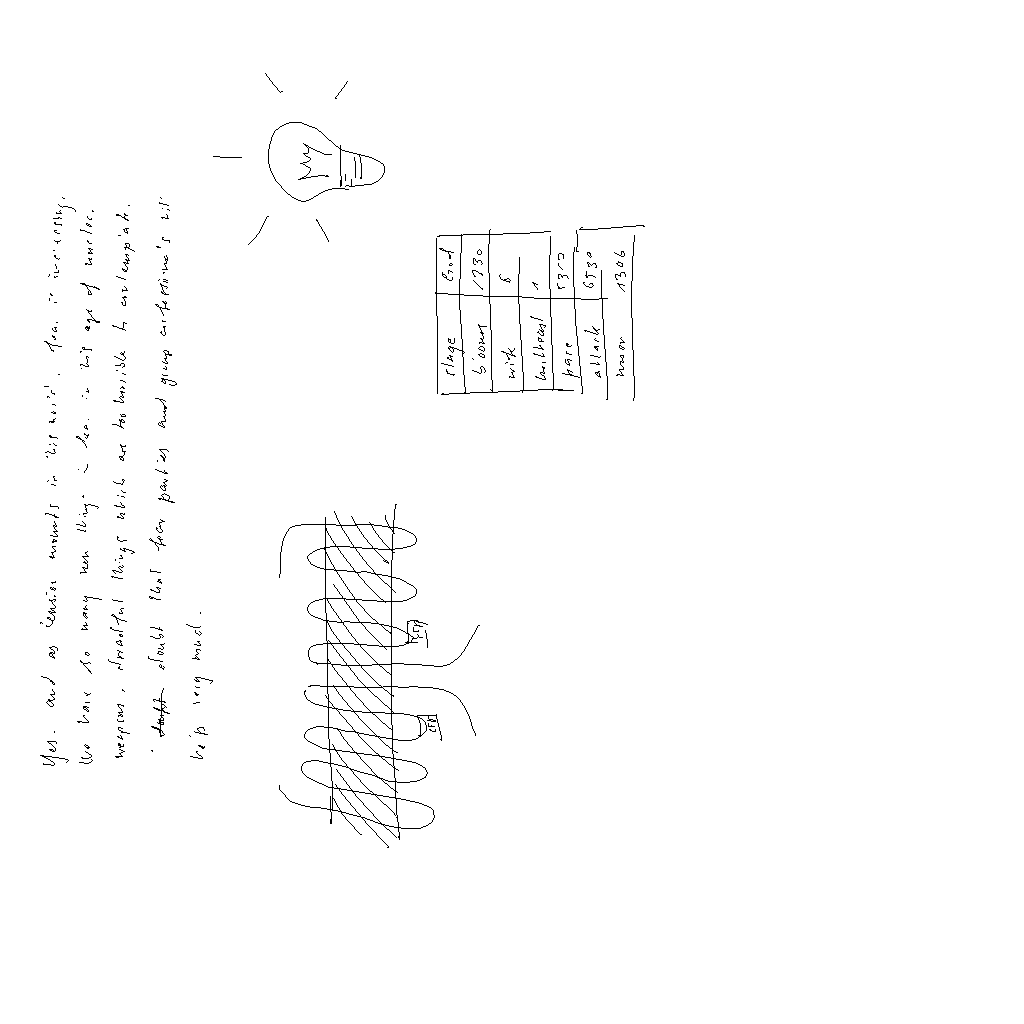 Yes. and as tension mounts in this world, fear is increasing.
We have so many new things to fear in this age of nuclear
weapons, dreadful things which are too horrible to contemplate.
I doubt that fear parties and group confessional's will
help very much.
stage Good
1730
wife 6
1
pare 5352
attack 6530
moor 1306